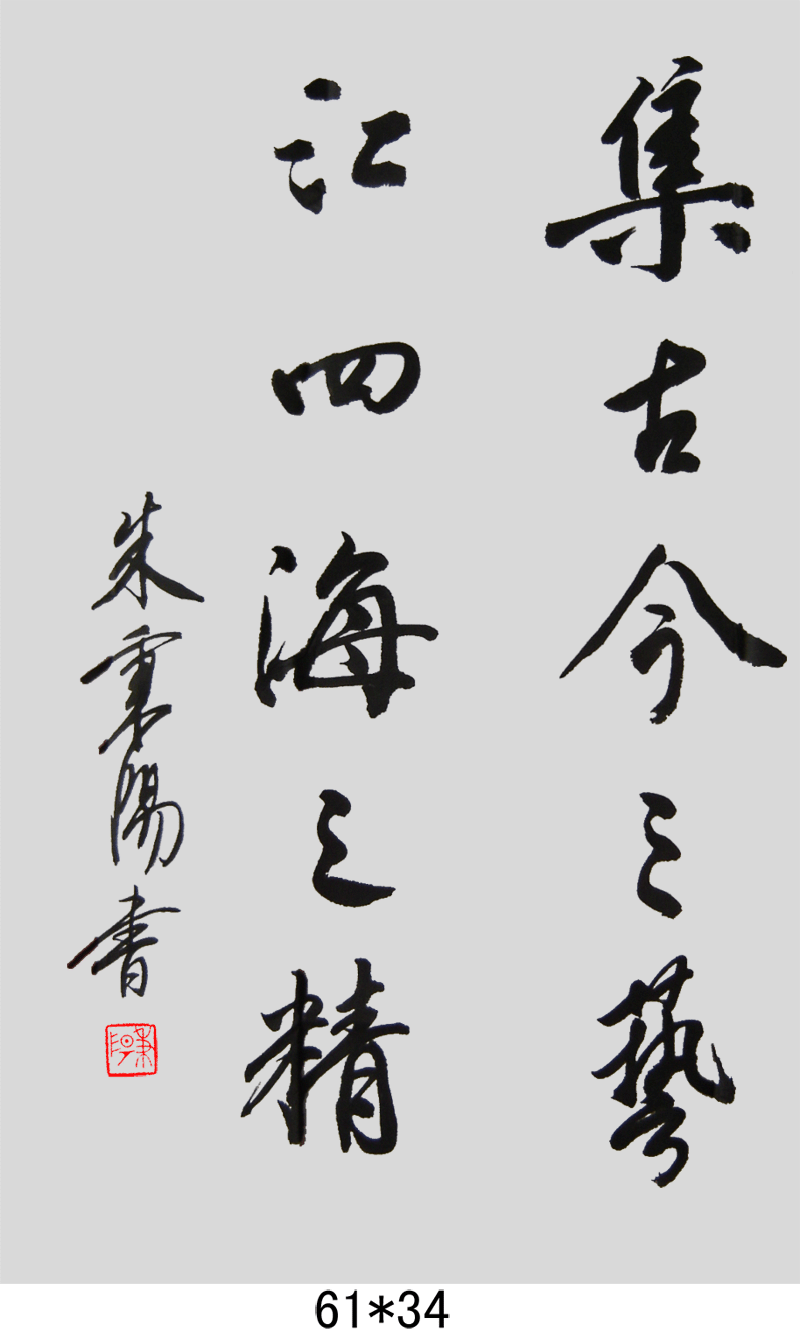 集古今之藝
汇四海之精
朱秉陽書
61*34